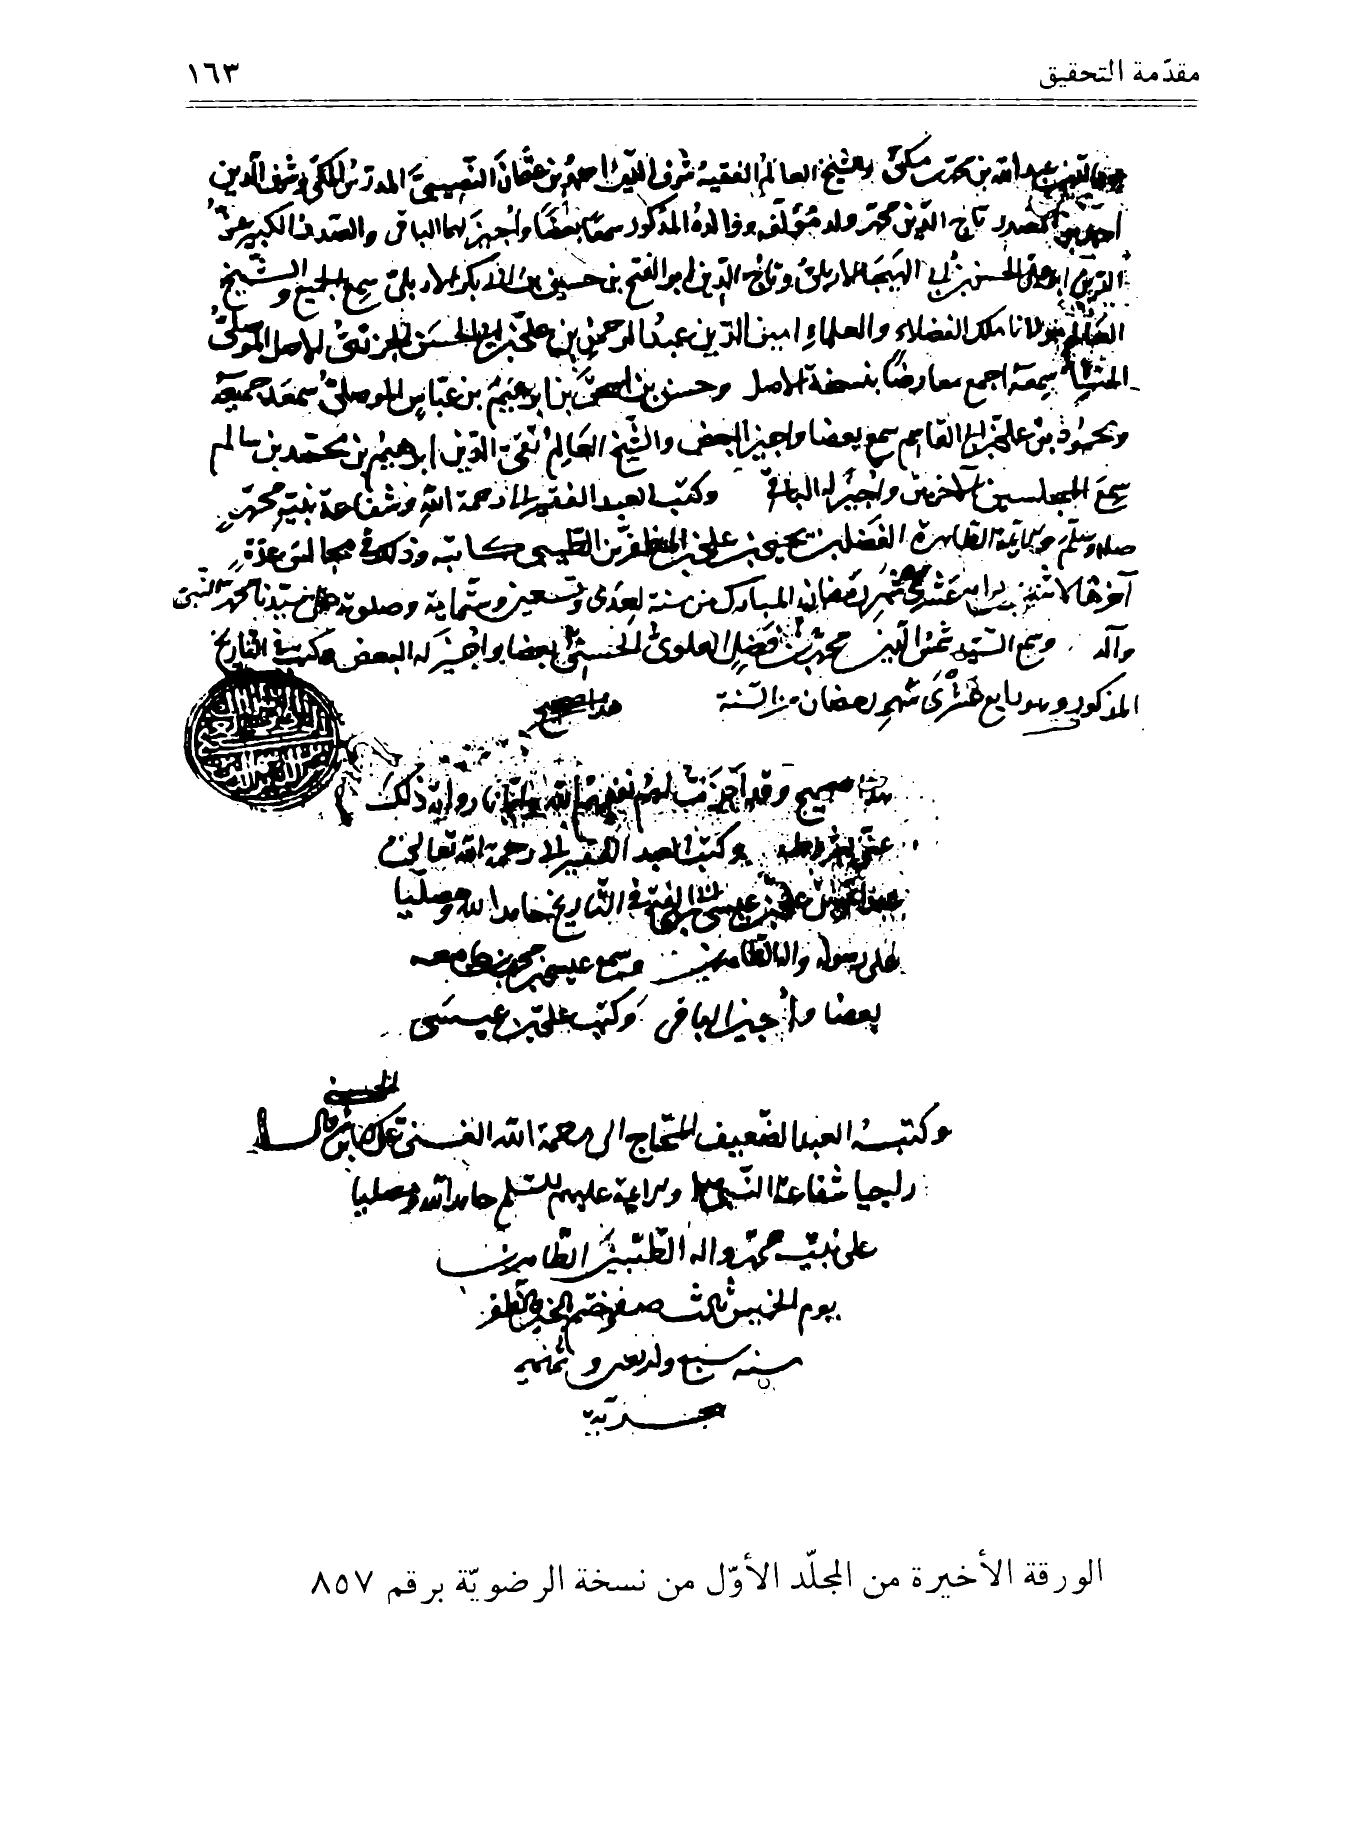 مقدّمة التحقيق
١٦٣
عبد الله بن محمّد بن مكي والشيخ العالم الفقيه شرف الدين احمد بن عثمان النصيبيّ المدرّس المالكي وشرف الدين
احمد بن الصدر تاج الدين محمّد ولد مؤلّفه ووالده المذكور سمعا بعضا وأجيز لهما الباقي والصدر الكبير عزّ
الدين ابو علي الحسن بن ابي الهيجا الاربلي وتاج الدين ابو الفتح بن حسين بن ابي بكر الاربلي سمع الجميع والشيخ
العالم مولانا ملك الفضلاء والعلماء امين الدين عبد الرحمن بن علي بن ابي الحسن الجزري الاصل الموصلي
المنشأ سمعه اجمع معارضا بنسخة الاصل وحسن بن اسحق بن ابرهيم بن عباس الموصلي سمعه جميعه
ومحمود بن علي بن ابي القاسم سمع بعضا واجيز البعض والشيخ العالم تقي الدين ابرهيم بن محمد بن سالم
سمع المجلسين الآخرين وأجيز له الباقي وكتب العبد الفقير الى رحمة الله وشفاعة نبيه محمد
صلى وسلم الطاهرة الفضل بن يحيى بن علي بن المظفر بن الطيبي كاتبه وذلك في مجالس عدة
آخرها الاثنين رابع عشري شهر رمضان المبارك من سنة احدى وتسعين وستماية وصلوته على سيدنا محمد النبي
وآله وسمع السيد شمس الدين محمد بن فضل العلوي الحسني بعضا وأجيز له البعض وكتب في التاريخ
المذكور وهو رابع عشرى شهر رمضان من السنة
هذا صحيح
هذا صحيح وقد أجزت لهم نفعهم الله وايانا رواية ذلك
عني بشروطه وكتب العبد الفقير الى رحمة الله تعالى
علي بن عيسى بن ابي الفتح في التاريخ حامدا لله ومصليا
على رسوله واله الطاهرين وسمع عيسى بن محمد بن جامعه
بعضا وأجيز الباقي وكتب علي بن عيسى
وكتبه العبد الضعيف المحتاج الى رحمة الله الغني
راجيا شفاعة النبي عليهم السلم حامدا لله ومصليا
على نبيه محمد واله الطيبين الطاهرين
يوم الخميس ثالث صفر ختم بالخير والظفر
سنه سبع واربعين وثمنميه
هجرية
الورقة الأخيرة من المجلّد الأوّل من نسخة الرضويّة برقم ٨٥٧